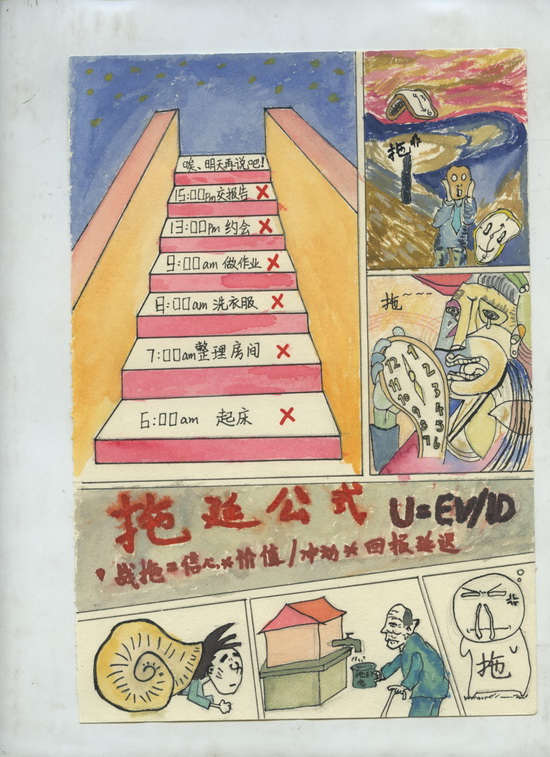 唉、明天再说吧!
15:00pm交报告
13:00pm 约会
9:00am 做作业
8:00am 洗衣服
7:00am整理房间
6:00am 起床
拖
拖~~~~
12
11
10
1
2
3
4
5
6
7
拖延公式 U=EV/ID
战拖=信心×价值/冲动×回报延迟
拖